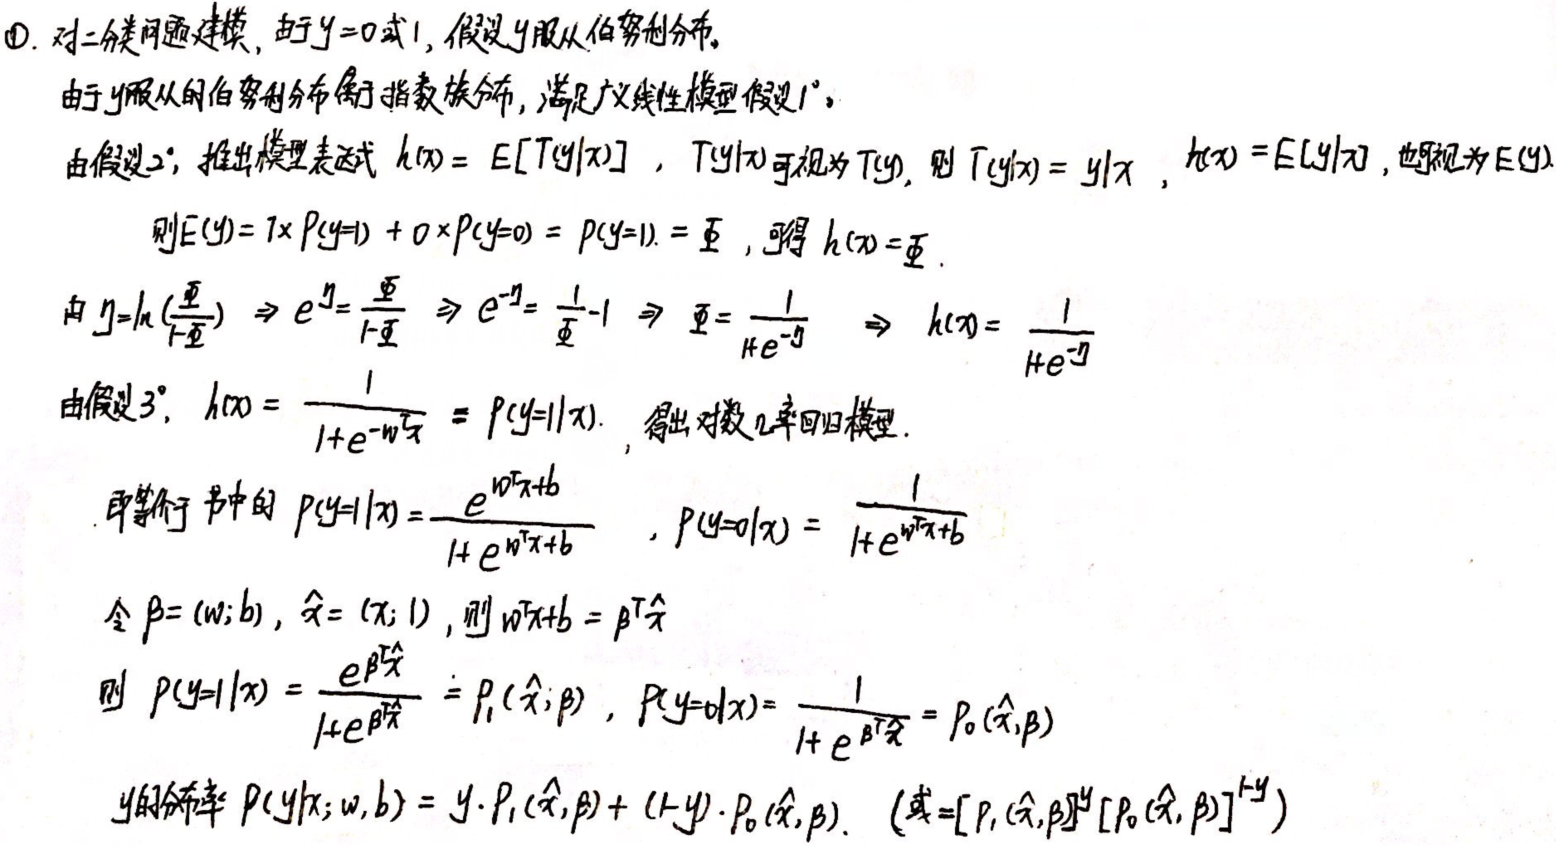 ①. 对二分类问题建模, 由于 y=0或1, 假设y服从伯努利分布。
由于y服从的伯努利分布属于指数族分布, 满足广义线性模型假设1°。
由假设2°, 推出模型表达式 h(x) = E[T(y|x)] , T(y|x)可视为T(y), 则 T(y|x) = y|x , h(x) = E[y|x], 也可视为E(y).
则E(y) = 1×P(y=1) + 0×P(y=0) = P(y=1). = Φ , 可得 h(x) = Φ .
由 η=ln(Φ/(1-Φ)) ⇒ e^η = Φ/(1-Φ) ⇒ e^(-η) = 1/Φ - 1 ⇒ Φ = 1/(1+e^(-η)) ⇒ h(x) = 1/(1+e^(-η))
由假设3°, h(x) = 1/(1+e^(-w^T x)) = P(y=1|x). , 得出对数几率回归模型.
即等价于书中的 P(y=1|x) = e^(w^T x+b)/(1+e^(w^T x+b)) , P(y=0|x) = 1/(1+e^(w^T x+b))
令 β = (w; b), x̂ = (x; 1), 则 w^T x+b = β^T x̂
则 P(y=1|x) = e^(β^T x̂)/(1+e^(β^T x̂)) = P₁(x̂; β) , P(y=0|x) = 1/(1+e^(β^T x̂)) = P₀(x̂, β)
y的分布率 P(y|x; w, b) = y·P₁(x̂, β) + (1-y)·P₀(x̂, β). (或=[P₁(x̂, β)]^y [P₀(x̂, β)]^(1-y))